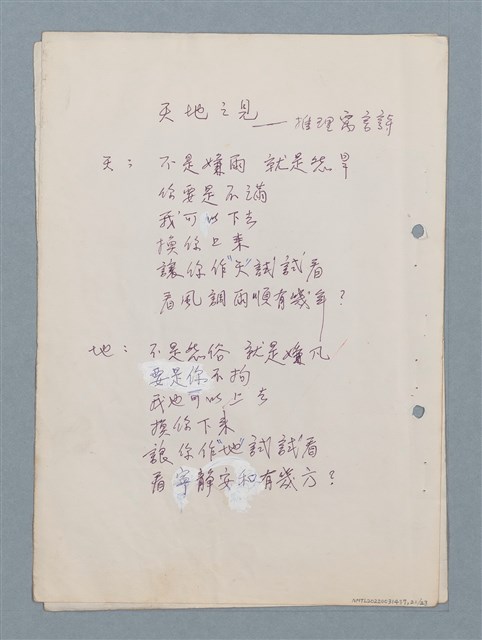 天地之見
——推理寓言詩
天： 不是嫌雨 就是怨旱
你要是不滿
我可以下去
換你上來
讓你作“天”試試看
看風調雨順有幾年？
地： 不是怨俗 就是嫌凡
要是你不拘
我也可以上去
換你下來
讓你作“地”試試看
看寧靜安和有幾方？